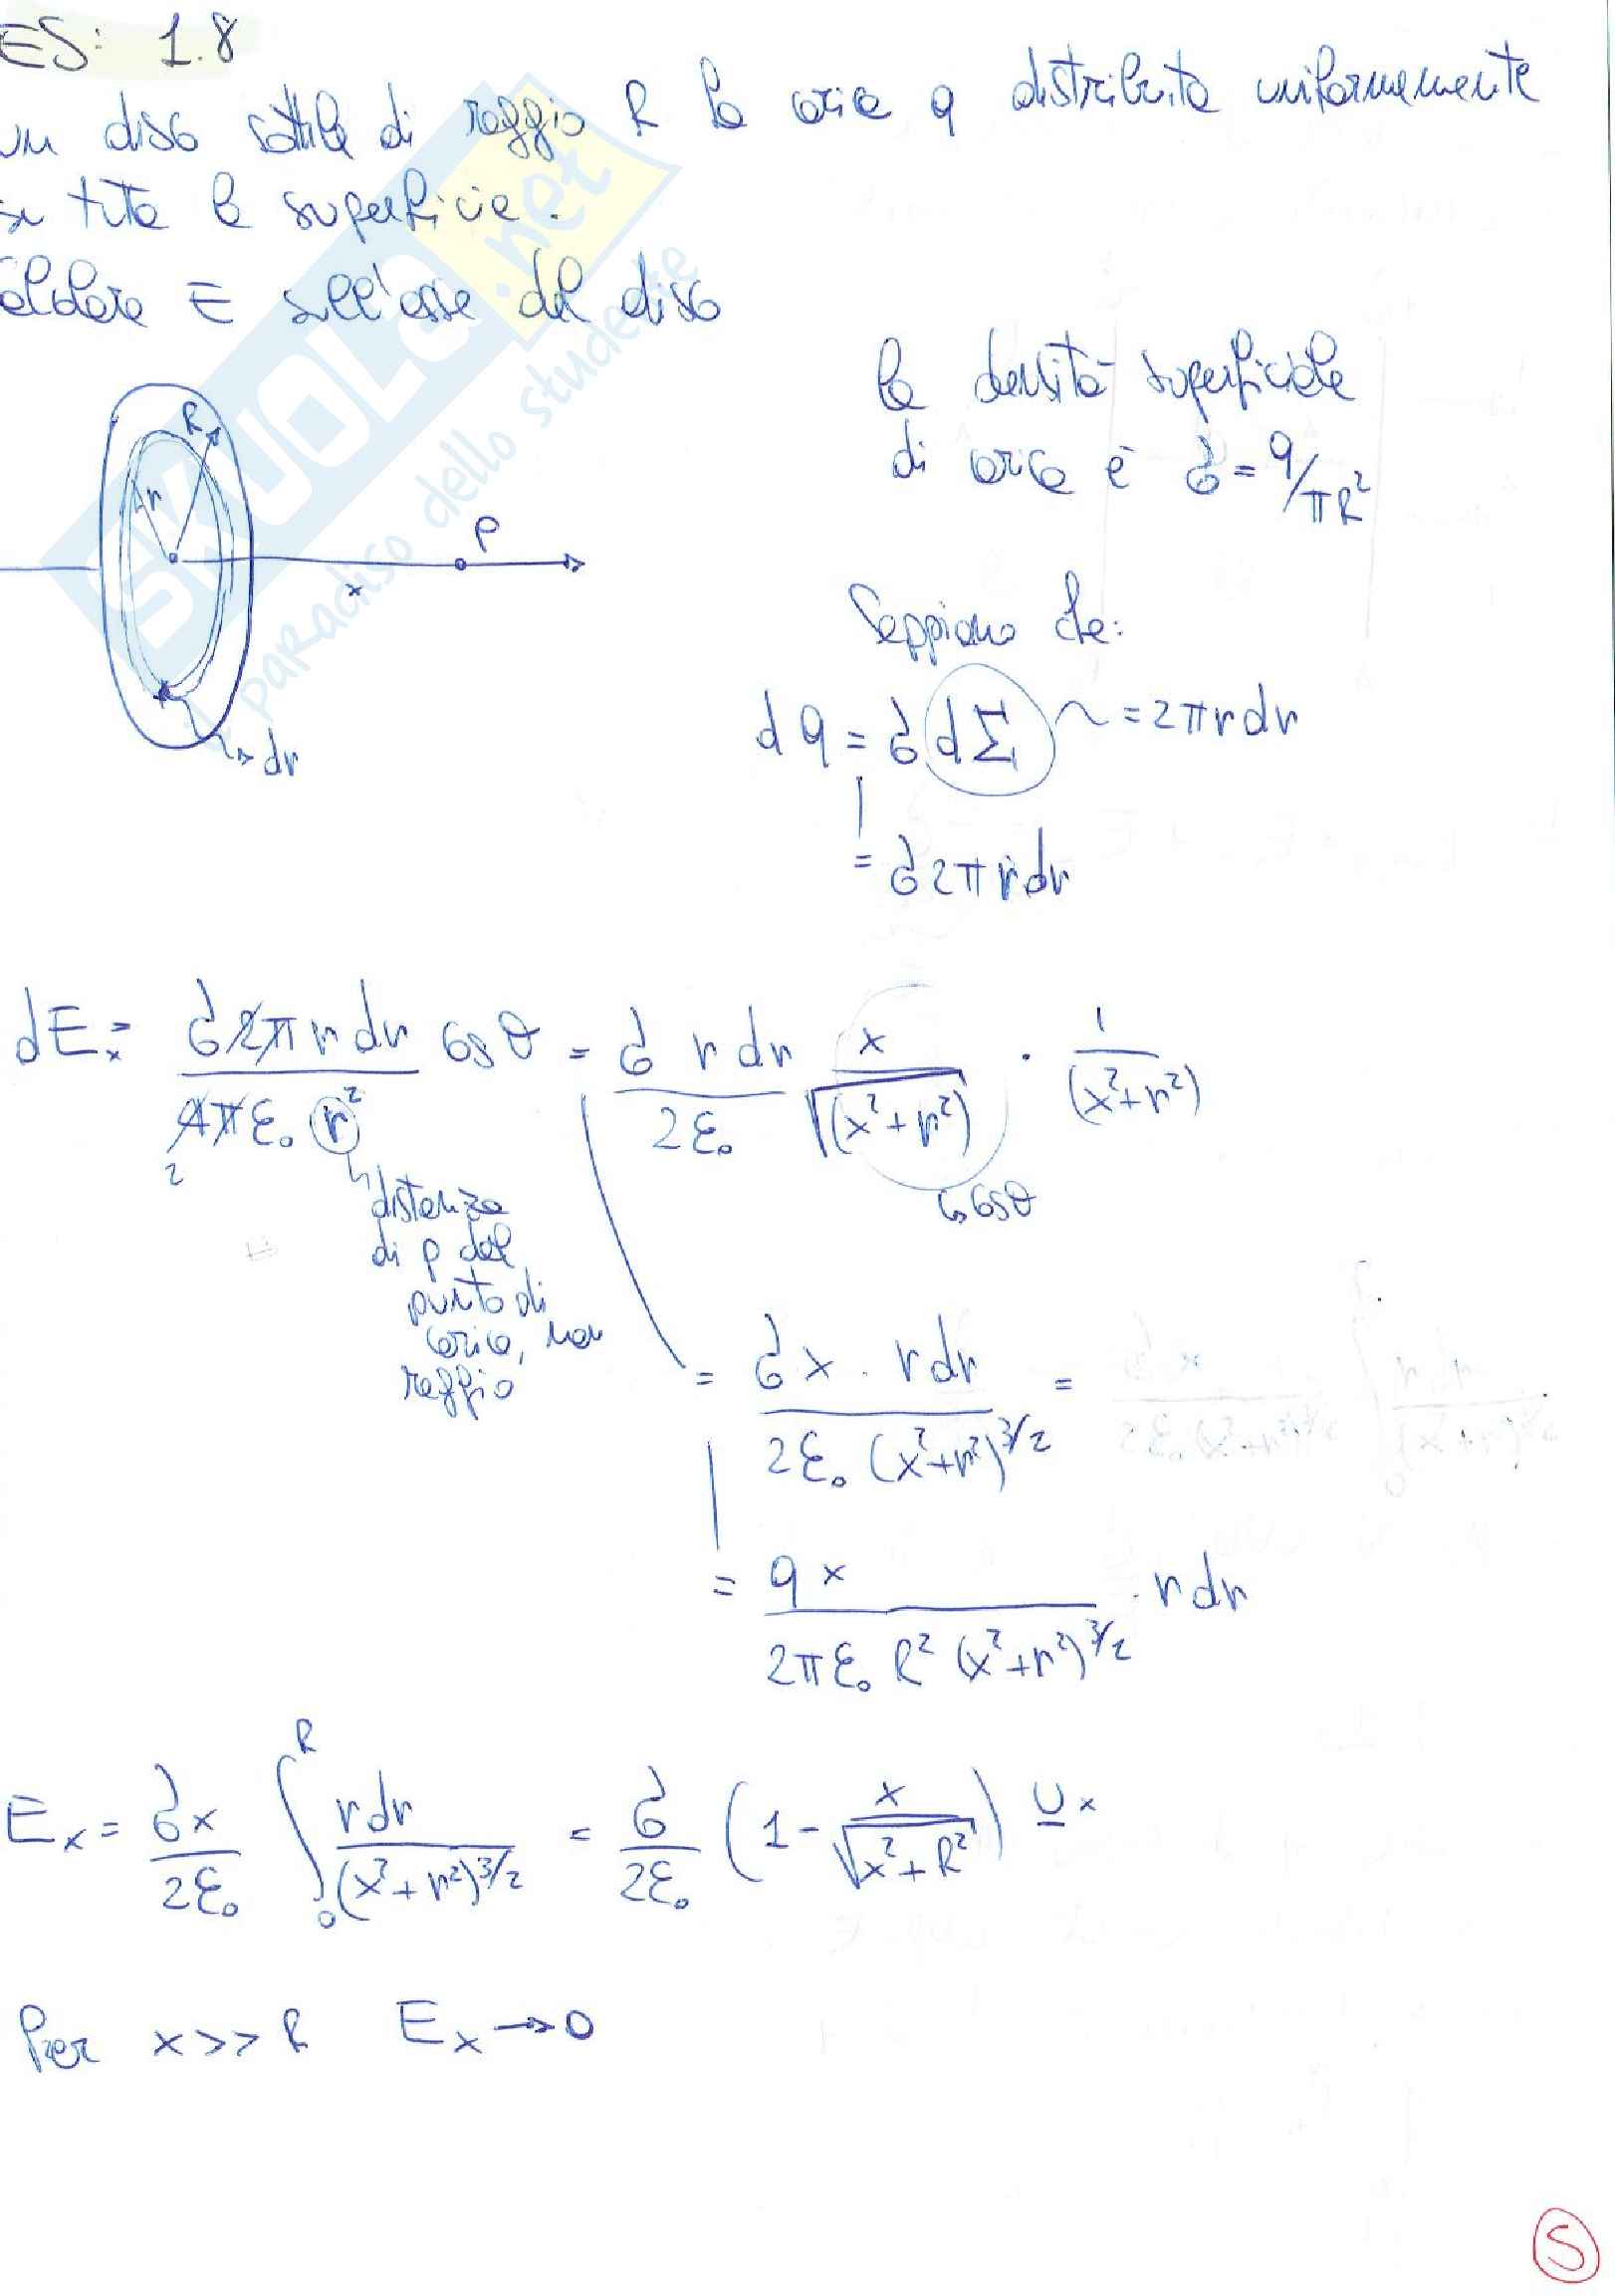 ES: 1.8
un disco sottile di raggio R ha carica q distribuita uniformemente
su tutta la superficie.
Calcolare E sull'asse del disco
la densità superficiale
di carica è σ = q/πR²
R
r
P
x
dr
Sappiamo che:
dq = σ dΣ ~ = 2πrdr
= σ2πrdr
dEx = σ2πrdr / 4πε₀ r² cosθ = σ r dr / 2ε₀ x / √(x²+r²) · 1 / (x²+r²)
2
↳ cosθ
↳ distanza
di P dal
punto di
carica, non
raggio
= σx · rdr / 2ε₀ (x²+r²)^3/2 =
= qx / 2πε₀ R² (x²+r²)^3/2 · rdr
Ex = σx / 2ε₀ ∫₀ᴿ rdr / (x²+r²)^3/2 = σ / 2ε₀ (1 - x / √x²+R²) Ux
Per x>>R Ex → 0
5
SKUOLA.net
il paradiso dello studente